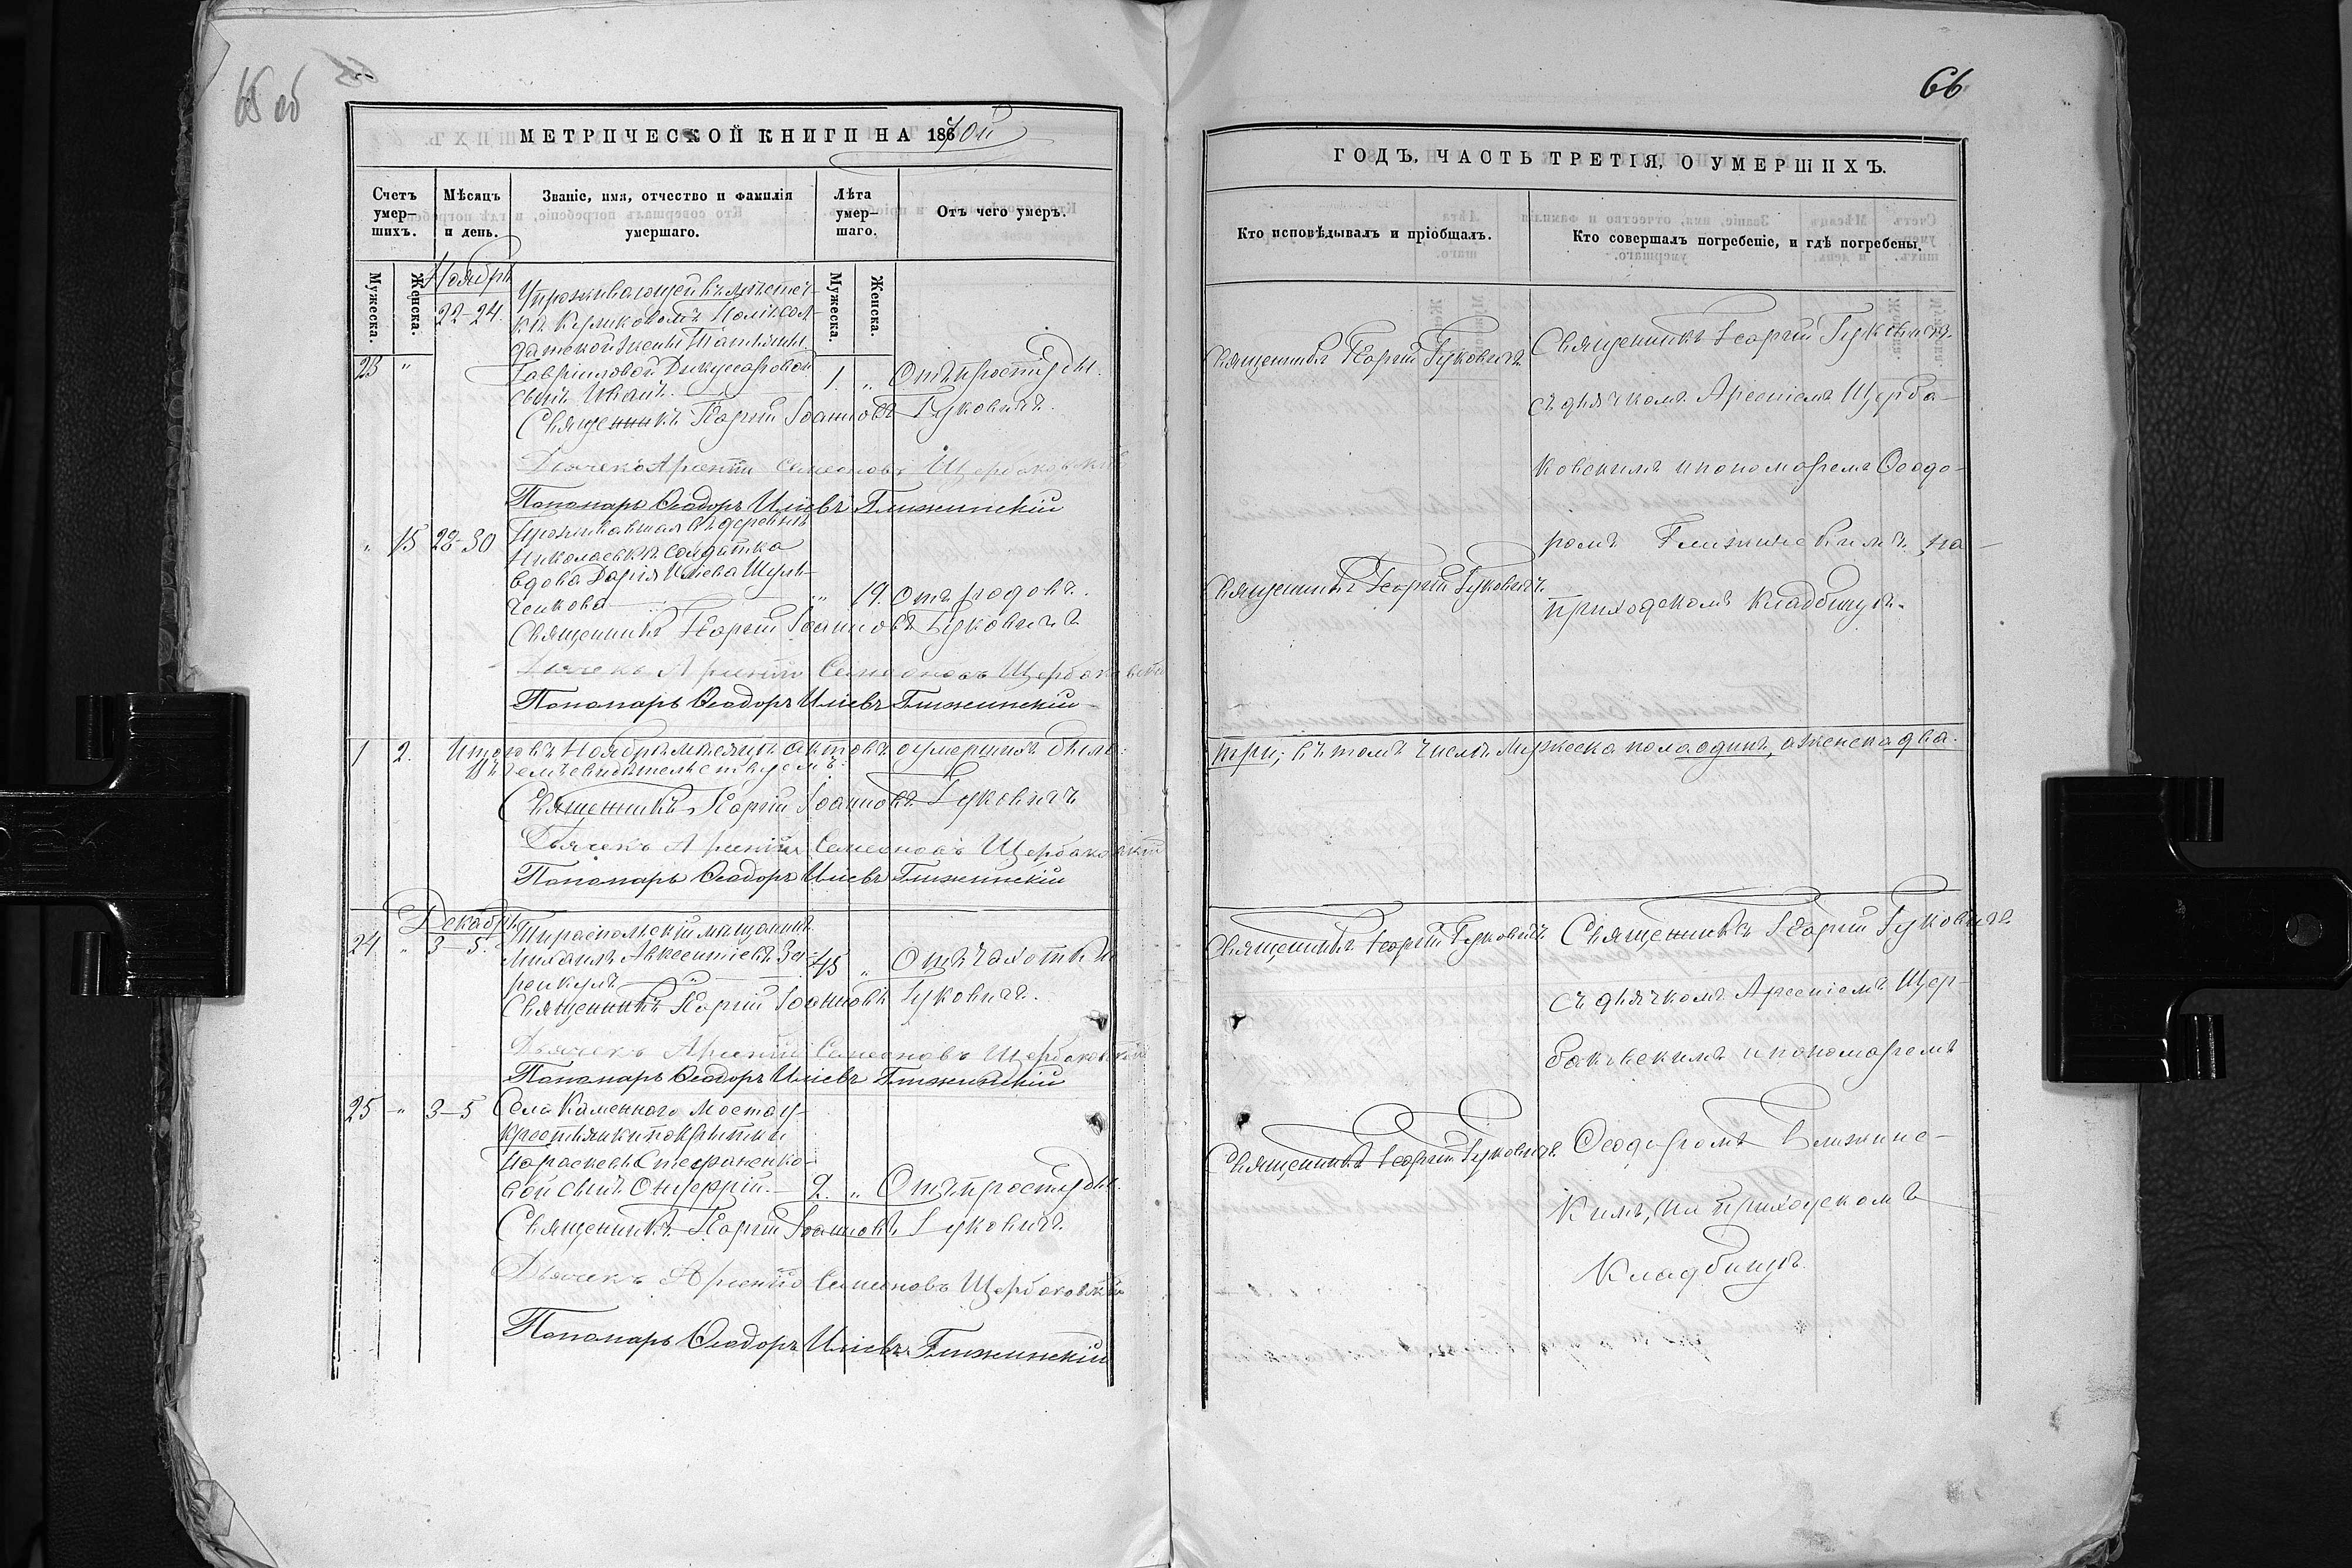 65 об
МЕТРИЧЕСКОЙ КНИГИ НА 1870й
Счетъ умер-шихъ.
Мѣсяцъ и день.
Званіе, имя, отчество и фамилія умершаго.
Лѣта умер-шаго.
Отъ чего умеръ.
Мужеска.
Женска.
Мужеска.
Женска.
Ноябрь
22-24.
У проживающей въ мѣстеч-
датской Татіяны
23 "
Гавриловой
сынъ Иванъ. 1. " Отъ простуды.
Священникъ Георгій Іоанновъ Гуковичъ.
Дьячекъ Арсеній Семеоновъ Щербаковскій
Пономарь Ѳеодоръ Иліевъ Глижинскій
" 15 28-30 Проживавшая въ деревнѣ
Николаевкѣ солдатка
вдова Дарія Иліева Шуль-
ченкова " 19. Отъ родовъ.
Священникъ Георгій Іоанновъ Гуковичъ
Дьячекъ Арсеній Семеоновъ Щербаковскій
Пономарь Ѳеодоръ Иліевъ Глижинскій
1 2. Итого въ Ноябрѣ мѣсяцѣ актовъ о умершихъ было:
Въ чемъ свидѣтельствуемъ:
Священникъ Георгій Іоанновъ Гуковичъ
Дьячекъ Арсеній Семеоновъ Щербаковскій
Пономарь Ѳеодоръ Иліевъ Глижинскій
Декабрь
24 " 3-5. Тираспольскій мѣщанинъ
Михаилъ Авксентіевъ За- 45 " Отъ чахотки
Священникъ Георгій Іоанновъ Гуковичъ.
Дьячекъ Арсеній Семеоновъ Щербаковскій
Пономарь Ѳеодоръ Иліевъ Глижинскій
25 " 3-5 Села Каменного моста у
крестьянки покрытки
Параскевы Стефаненко-
вой сынъ Онуфрій. 2. " Отъ простуды.
Священникъ Георгій Іоанновъ Гуковичъ.
Дьячекъ Арсеній Семеоновъ Щербаковскій
Пономарь Ѳеодоръ Иліевъ Глижинскій
66
ГОДЪ, ЧАСТЬ ТРЕТІЯ, О УМЕРШИХЪ.
Кто исповѣдывалъ и пріобщалъ.
Кто совершалъ погребеніе, и гдѣ погребены.
Священникъ Георгій Гуковичъ.
Священникъ Георгій Гуковичъ
съ дьячкомъ Арсеніемъ Щерба-
ковскимъ и пономаремъ Ѳеодо-
ромъ Глижинскимъ на
приходскомъ кладбищѣ.
Священникъ Георгій Гуковичъ.
три; въ томъ числѣ мужеска пола одинъ, а женска два.
Священникъ Георгій Гуковичъ.
Священникъ Георгій Гуковичъ
съ дьячкомъ Арсеніемъ Щер-
баковскимъ и пономаремъ
Ѳеодоромъ Глижинс-
кимъ, на приходскомъ
кладбищѣ.
Священникъ Георгій Гуковичъ.